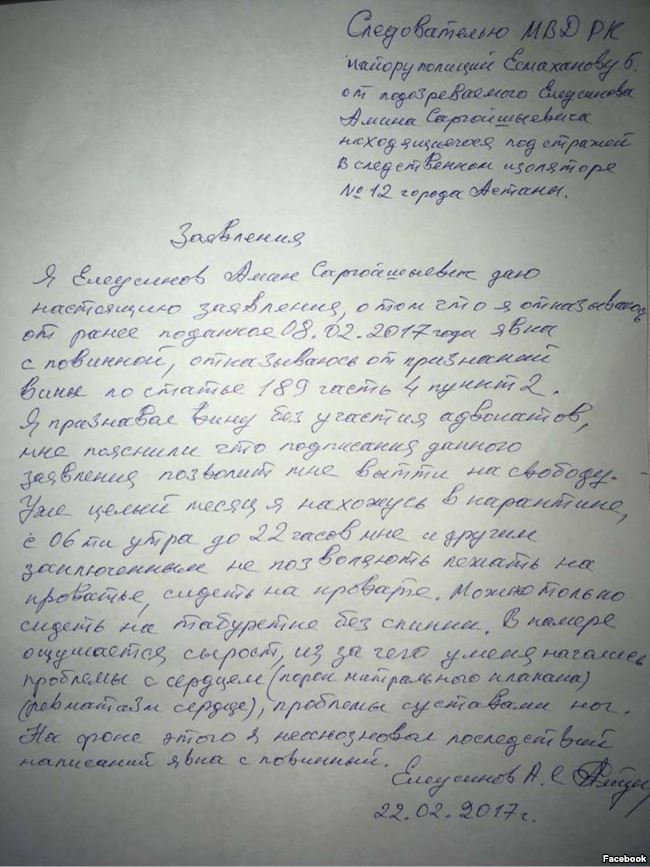 Следователю МВД РК
майору полиции Есмаханову Б.
от подозреваемого Елеусинова
Амина Саргойшыевича
находящиегося под стражей
в следственном изоляторе
№ 12 города Астаны.
Заявления
Я Елеусинов Амин Саргойшыевич даю
настоящию заявления, о том что я отназываюсь
от ранее поданное 08.02.2017 года явна
с повинной, отназываюсь от признаний
вины по статье 189 часть 4 пункт 2.
Я признавал вину без участия адвокатов,
мне пояснили что подписания данного
заявления позволит мне вытти на свободу.
Уже целый месяц я нахожусь в карантине,
с 06 ти утра до 22 часов мне и другим
заключенным не позволяють лежать на
кроватье, сидеть на кровате. Можно только
сидеть на табуретке без спинки. В камере
ощушается сырост, из за чего у меня начались
проблемы с сердцем (порок митрального клапана)
(ревматазм сердце), проблемы суставами ног.
На фоне этого я неосозновал последствий
написаний явка с повинный.
Елеусинов А. С
22.02.2017 г.
Facebook